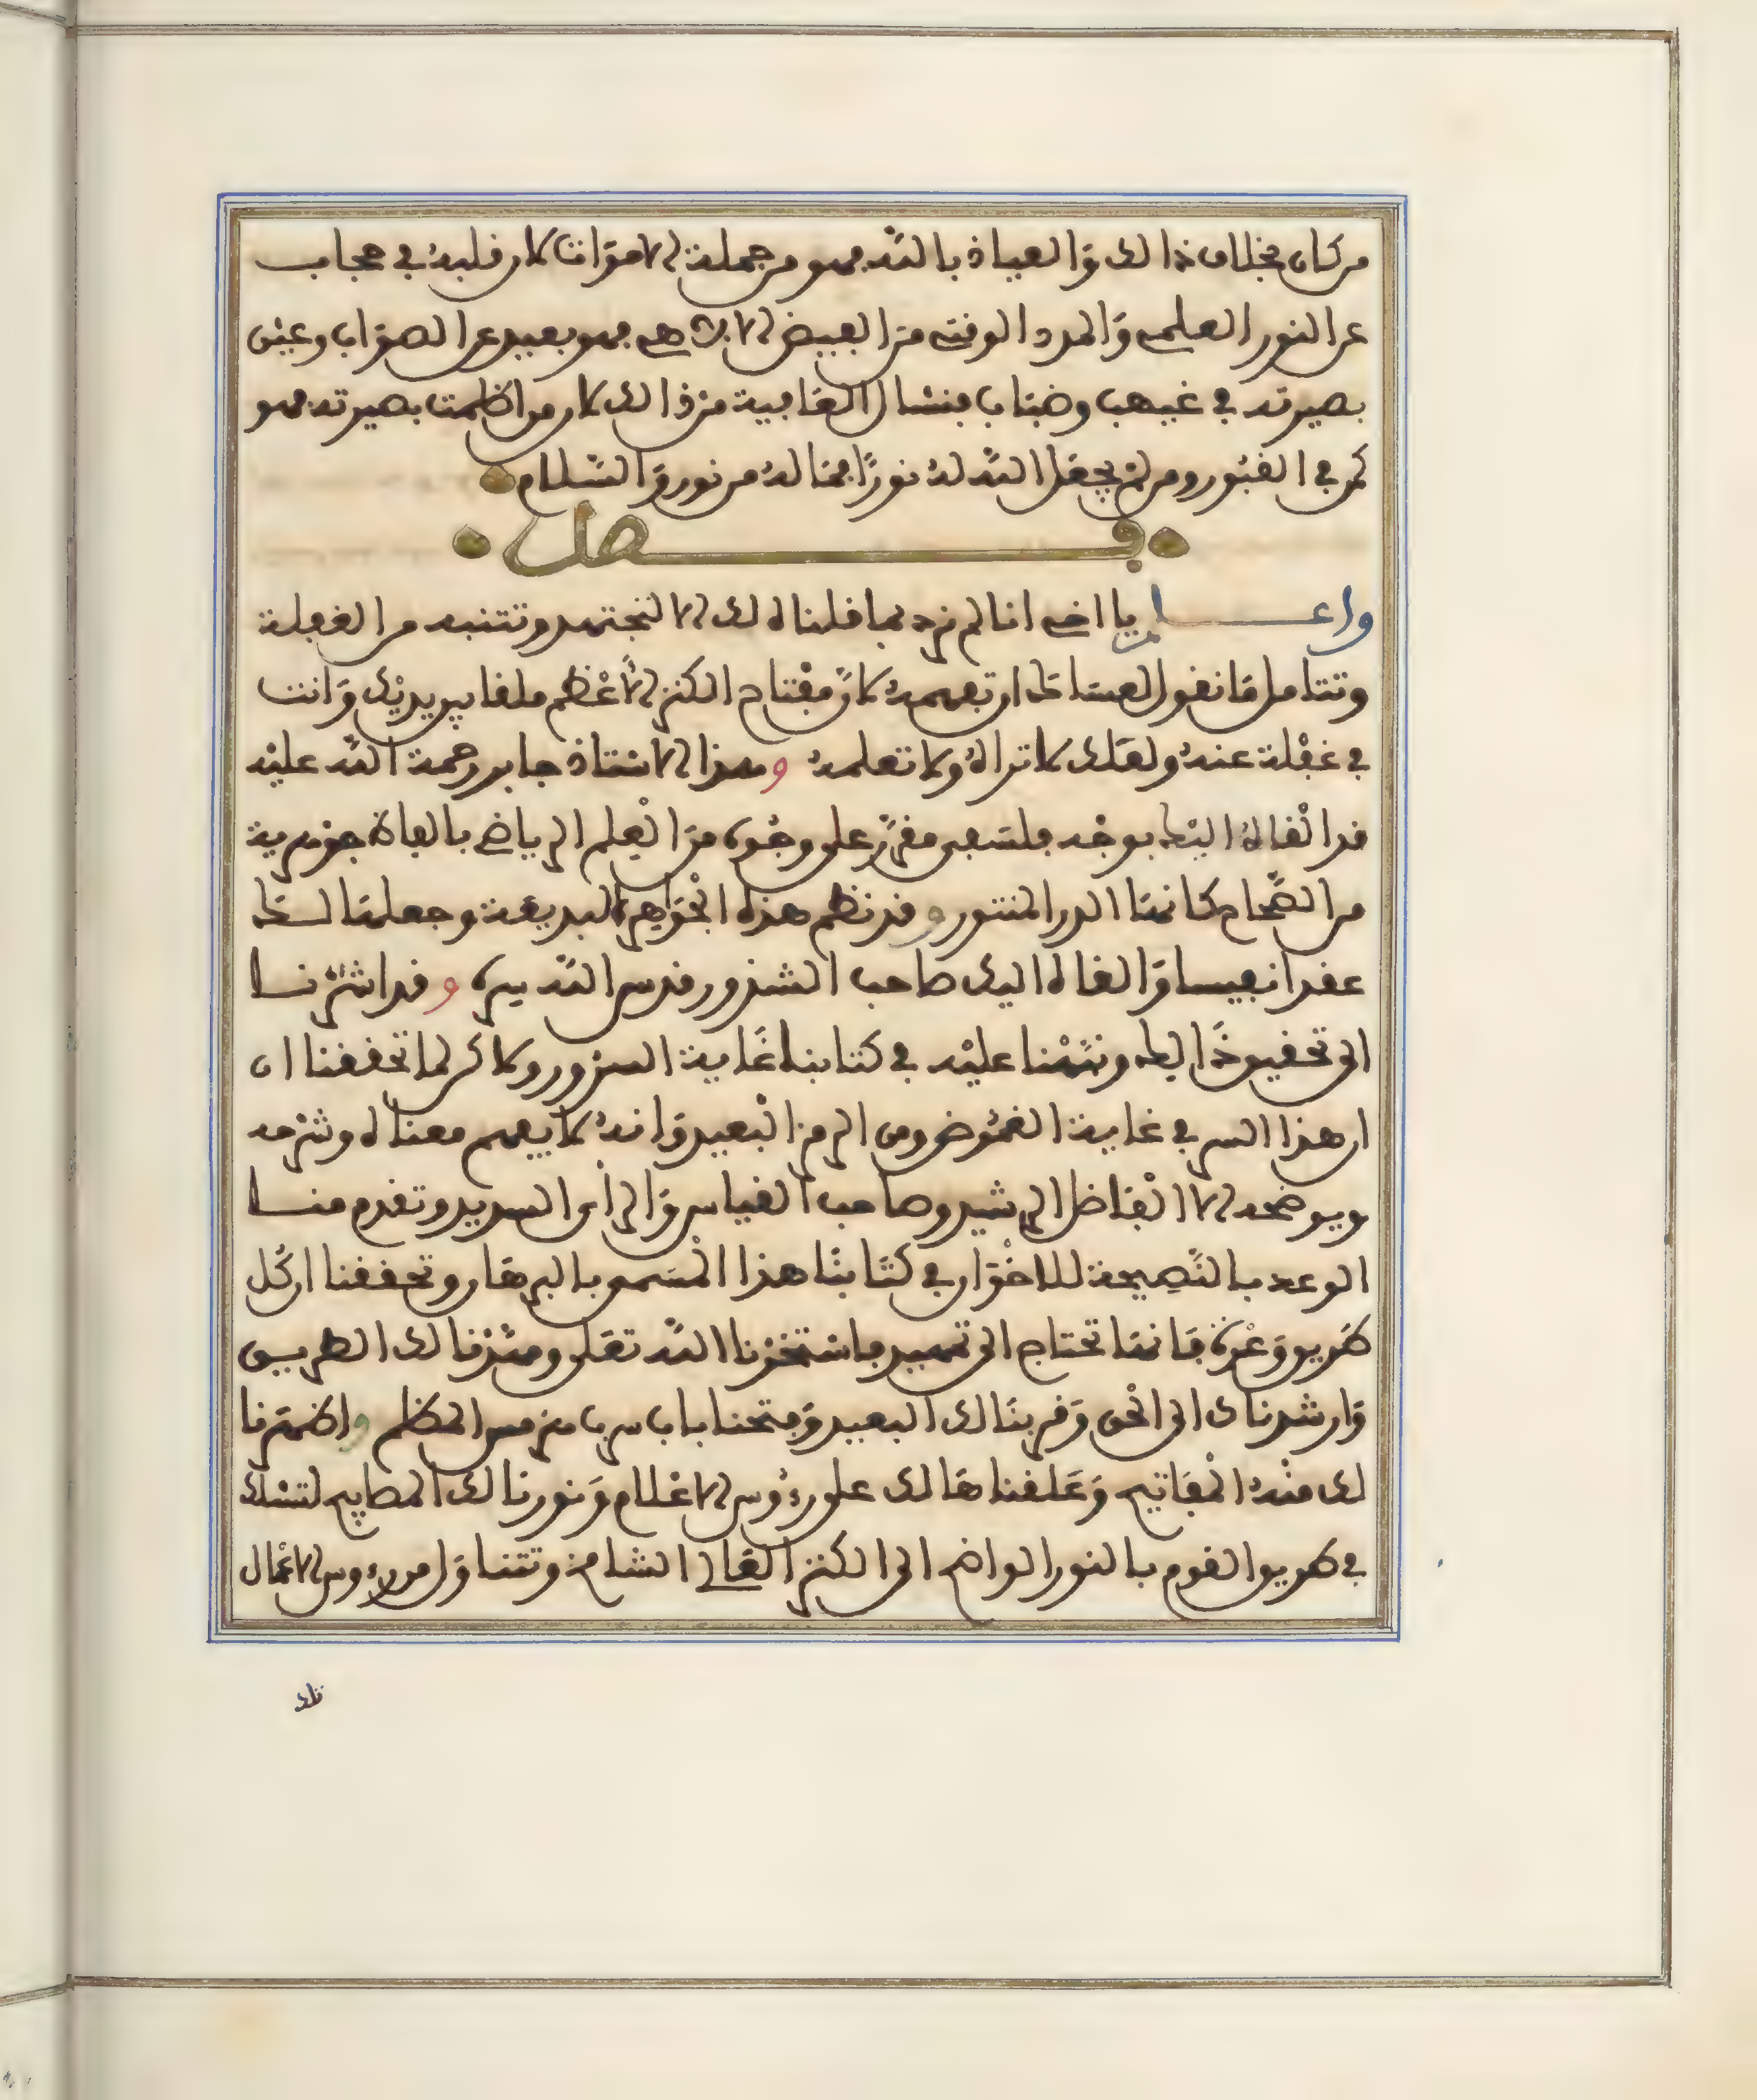 من كان بخلاف ذالك والعياذ بالله فهو من جملة الاموات لان قلبه في حجاب
عن النور العلمي والمدد الوفتي من الفيض الالاهي فهو بعيد عن الصواب وعين
بصيرته في غيهب وضباب فنسئال العافية من ذالك لان من اظلمت بصيرته فهو
كمن في القبور ومن لم يجعل الله له نورًا فما له من نور والسّلام
فصل
واعلم يا اخي انا لم نرد بما قلناه لك الا لتجتهد وتتنبه من الغفلة
وتتامل ما نقول لعساك ان تفهمه لانّ مفتاح الكنز الاعْظم ملقا بين يديْك وانت
في غفْلة عنه ولعلك لا تراهُ ولا تعلمه وهذا الاستاذ جابر رحمة الله عليْه
قد الْقاهُ اليْك بوجْه فلسفي مفرّز على وجُوه من العِلم الرياضي بالفاظ جوْهرية
من الصّحاح كانها الدر المنثور وقد نظم هذه الجْواهر البديعة وجعلها لك
عقدا نفيسا والقاه اليك صاحب الشذور قدس الله سره وقد اشرْنا
الى تحقيق ذَالك ونبّهْنا عليْه في كتابنا غَاية السرور ولاكن لما تحققنا ان
ان هذا السر في غاية الغمُوض ومن الرمز الْبعيد وانهُ لا يفهم معناه وشرْحه
ويوضحه الا الْفاضل الرشيد وصاحب القياس والراْى السديد وتقدم منا
الوعد بالنّصِيحة للاخْوان في كتابنا هذا الْمسمى بالبرهان وتحققنا ان كُل
طَريق وَعْرة فَانها تحتاج الى تمهيد فاسْتخرْنا الله تعلى ومهّدْنا لك الطريق
وَارشدناك الى الحْق وَقربنا لك البعيد وَفتحنا باب سرب هرمس المظلم واظهرنا
لك منْهُ الْمفاتيح وَعَلقنا هَا لك على رءُوس الاعْلام وَنورنا لك المصابيح لتسْلك
في طريق القوم بالنور الواضح الى الكنز العَالي الشامخ وتتناوَل من رءوس الاعْمال
تلك